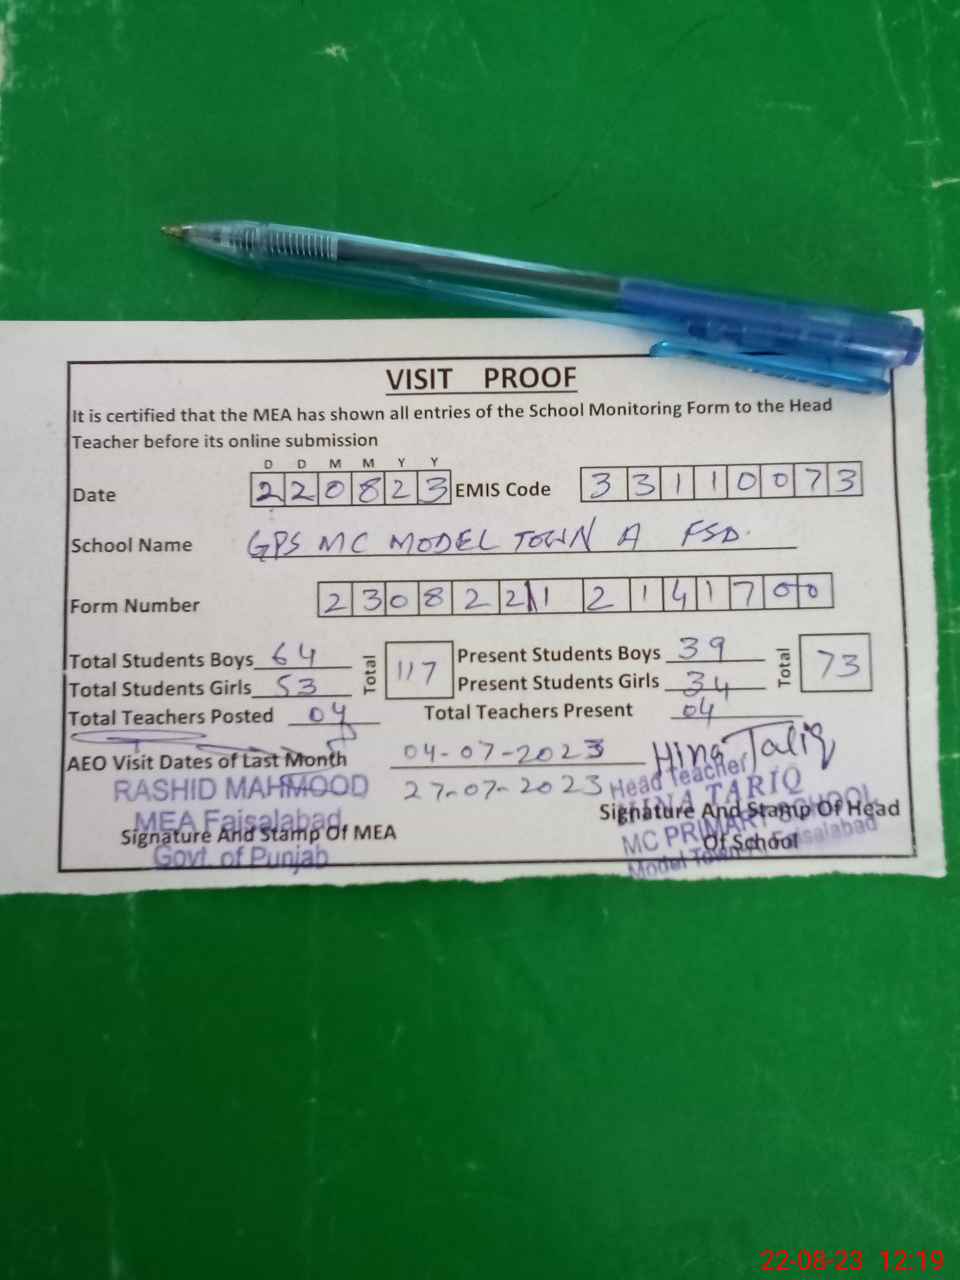 VISIT PROOF
It is certified that the MEA has shown all entries of the School Monitoring Form to the Head
Teacher before its online submission
D D M M Y Y
Date 2 2 0 8 2 3 EMIS Code 3 3 1 1 0 0 7 3
School Name GPS MC MODEL TOWN A FSD.
Form Number 2 3 0 8 2 2 1 2 1 4 1 7 0 0
Total Students Boys 64 Total 117 Present Students Boys 39 Total 73
Total Students Girls 53 Present Students Girls 34
Total Teachers Posted 04 Total Teachers Present 04
AEO Visit Dates of Last Month 04-07-2023 Hina Tariq
RASHID MAHMOOD 27-07-2023 Head Teacher
MEA Faisalabad HINA TARIQ
Signature And Stamp Of MEA Signature And Stamp Of Head
Govt. of Punjab MC PRIMARY SCHOOL
Of School
Model Town A Faisalabad
22-08-23 12:19